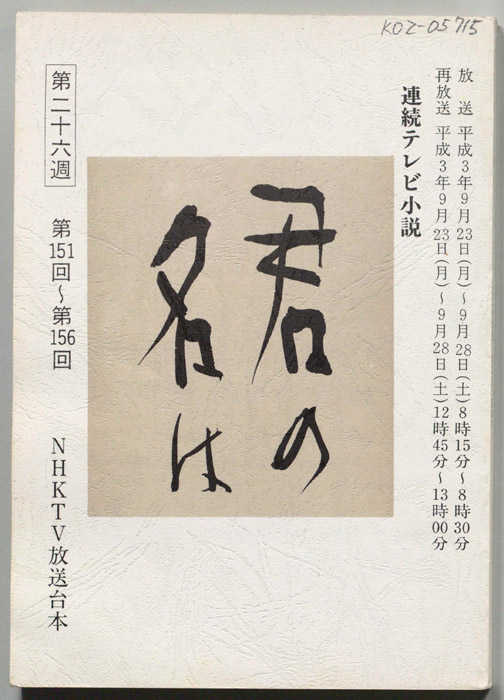 KOZ-05715
放　送　平成3年9月23日(月)～9月28日(土)8時15分～8時30分
再放送　平成3年9月23日(月)～9月28日(土)12時45分～13時00分
連続テレビ小説
君の
名は
第二十六週
第151回～第156回
NHKTV放送台本